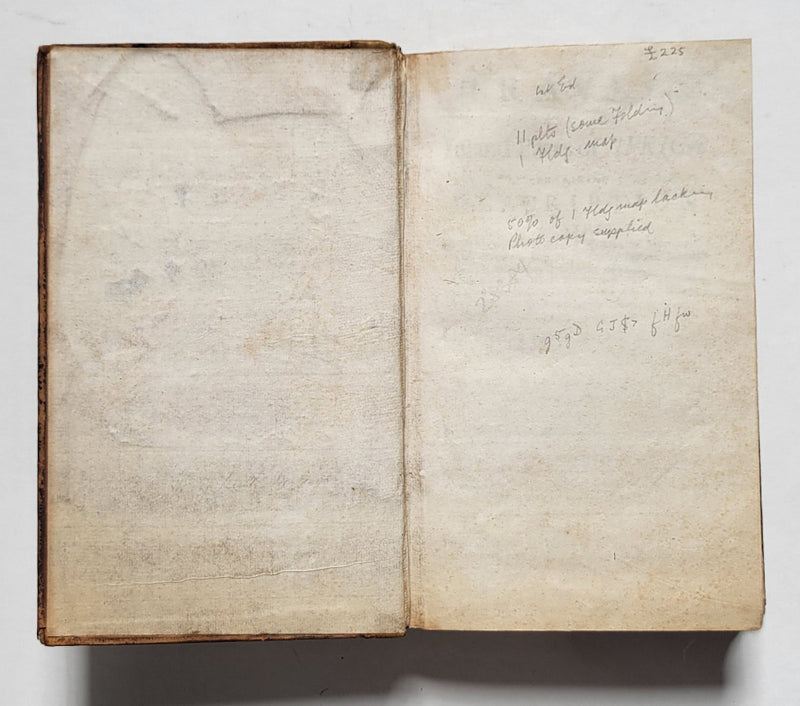 £225
1st Ed
11 plts (some Folding)
1 Fldg. map
50% of 1 Fldg map lacking
Photocopy supplied